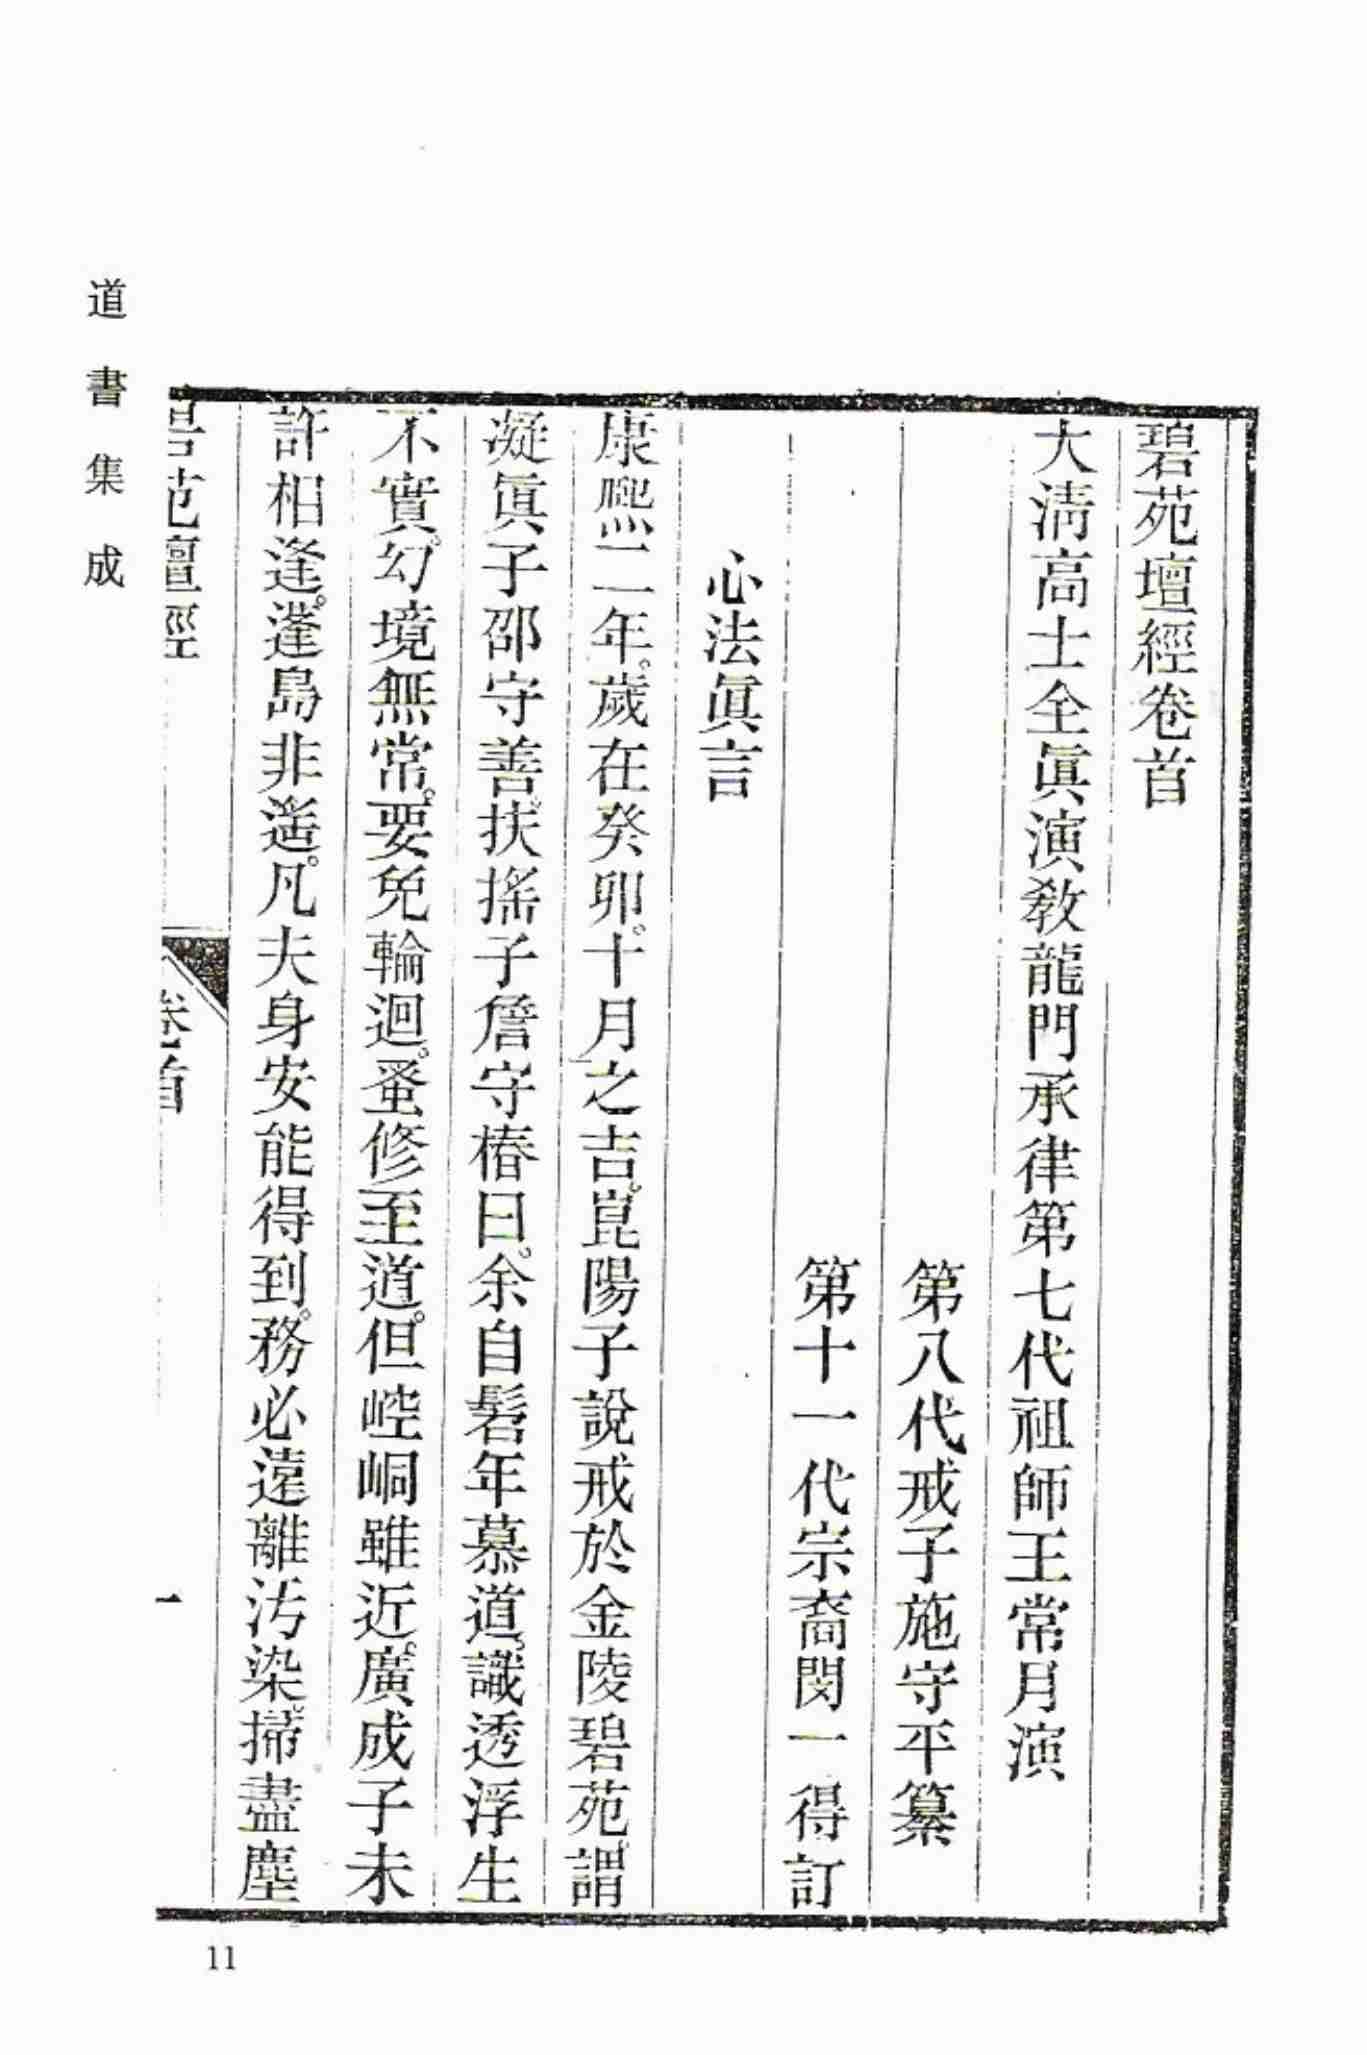 碧苑壇經卷首
大淸高士全眞演敎龍門承律第七代祖師王常月演
第八代戒子施守平纂
第十一代宗裔閔一得訂
心法眞言
康熙二年。歲在癸卯。十月之吉。崑陽子說戒於金陵碧苑。謂
凝眞子邵守善。扶搖子詹守椿曰。余自髫年慕道。識透浮生
不實。幻境無常。要免輪迴。蚤修至道。但崆峒雖近。廣成子未
許相逢。蓬島非遙。凡夫身安能得到。務必遠離汚染。掃盡塵
碧苑壇經
卷首
一
道書集成
11